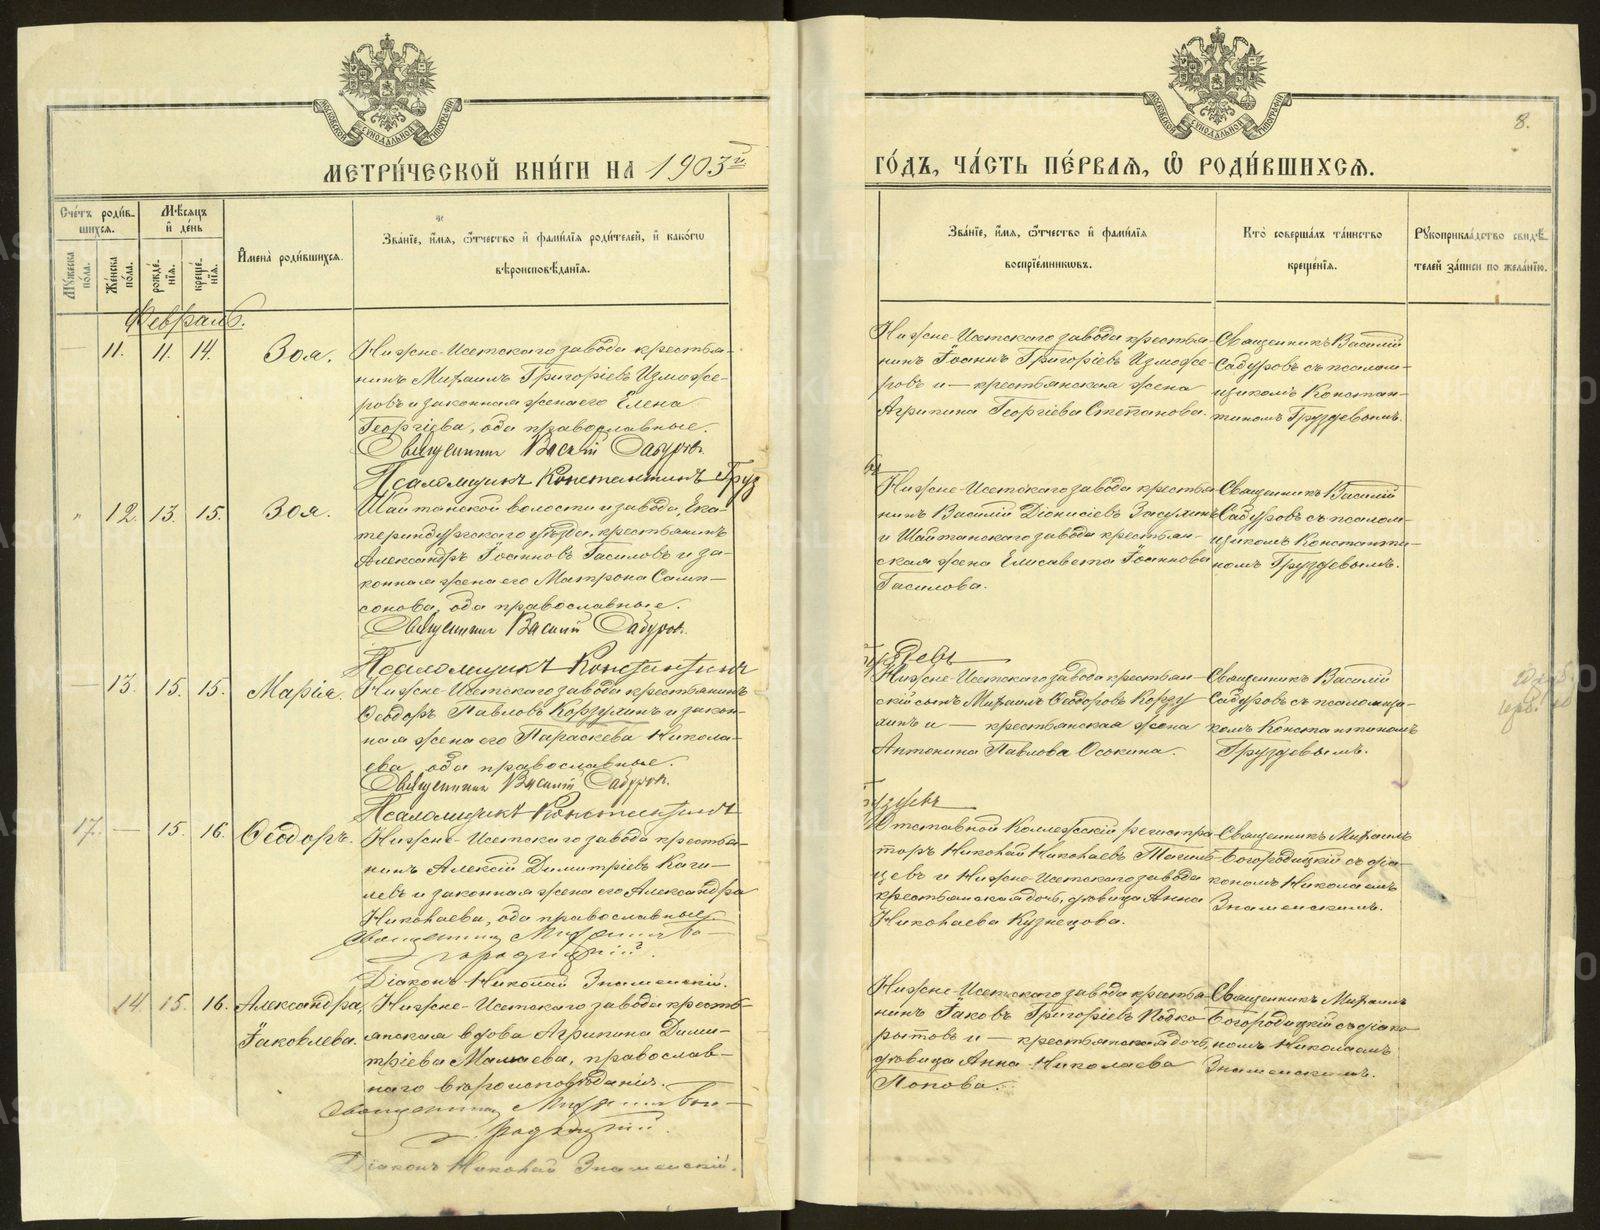 МЕТРИ́ЧЕСКОЙ КНИ́ГИ НА 1903й
ГО́ДЪ, ЧА́СТЬ ПЕ́РВАѦ, Ѿ РОДИ́ВШИХСѦ.
8.
Сче́тъ роди́в-
шихся.
Мѣсяцъ
и де́нь
Му́жеска
по́ла.
Же́нска
по́ла.
рожде́-
нія.
креще́-
нія.
Имена̀ роди́вшихся.
Зва́ніе, и́мя, ѻ҆́тчество и фами́лія роди́телей, и како́гѡ
вѣроисповѣ́данія.
Зва́ніе, и́мя, ѻ҆́тчество и фами́лія
воспріе́мникωвъ.
Кто̀ соверша́лъ та́инство
креще́нія.
Рукоприкла́дство свидѣ́-
телей за́писи по жела́нію.
Февраль.
— 11. 11. 14. Зоя.
Нижне-Исетскаго завода крестья-
нинъ Михаилъ Григоріевъ Изможе-
ровъ и законная жена его Елена
Георгіева, оба православные.
Священникъ Василій Сабуровъ.
Псаломщикъ Константинъ Груз
Нижне-Исетскаго завода крестья-
нинъ Іоаннъ Григоріевъ Изможе-
ровъ и — крестьянская жена
Агрипина Георгіева Степанова.
Священникъ Василій
Сабуровъ съ псалом-
щикомъ Констан-
тиномъ Груздевымъ.
" 12. 13. 15. Зоя.
Шайтанской волости и завода, Ека-
теринбургскаго уѣзда, крестьянинъ
Александръ Іоанновъ Гасиловъ и за-
конная жена его Матрона Самп-
сонова, оба православные.
Священникъ Василій Сабуровъ.
Псаломщикъ Константинъ
Нижне-Исетскаго завода крестья-
нинъ Василій Діонисіевъ Засухинъ
и Шайтанскаго завода крестьян-
ская жена Елисавета Іоаннова
Гасилова.
Священникъ Василій
Сабуровъ съ псалом-
щикомъ Константи-
номъ Груздевымъ.
— 13. 15. 15. Марія.
Нижне-Исетскаго завода крестьянинъ
Ѳеодоръ Павловъ Корзухинъ и закон-
ная жена его Параскева Никола-
ева, оба православные.
Священникъ Василій Сабуровъ.
Псаломщикъ Константинъ
Груздевъ
Нижне-Исетскаго завода крестьян-
скій сынъ Михаилъ Ѳеодоровъ Корзу
хинъ и — крестьянская жена
Антонина Павлова Осокина.
Священникъ Василій
Сабуровъ съ псаломщи-
комъ Константиномъ
Груздевымъ.
17. — 15. 16. Ѳеодоръ.
Нижне-Исетскаго завода крестья-
нинъ Алексій Димитріевъ Каги-
левъ и законная жена его Александра
Николаева, оба православные.
Священникъ Михаилъ Бо-
городицкій.
Діаконъ Николай Знаменскій.
Груздевъ
Отставной Коллежскій регистра-
торъ Николай Николаевъ
цевъ и Нижне-Исетскаго завода
крестьянская дочь, дѣвица Анна
Николаева Кузнецова.
Священникъ Михаилъ
Богородицкій съ діа-
кономъ Николаемъ
Знаменскимъ.
14. 15. 16. Александра,
Іаковлева.
Нижне-Исетскаго завода кресть-
янская вдова Агрипина Дими-
тріева Малаева, православ-
наго вѣроисповѣданія.
Священникъ Михаилъ Бого-
родицкій.
Діаконъ Николай Знаменскій.
Нижне-Исетскаго завода крестья-
нинъ Іаковъ Григоріевъ Подко
рытовъ и — крестьянская дочь,
дѣвица Анна Николаева
Попова.
Священникъ Михаилъ
Богородицкій съ діако
номъ Николаемъ
Знаменскимъ.